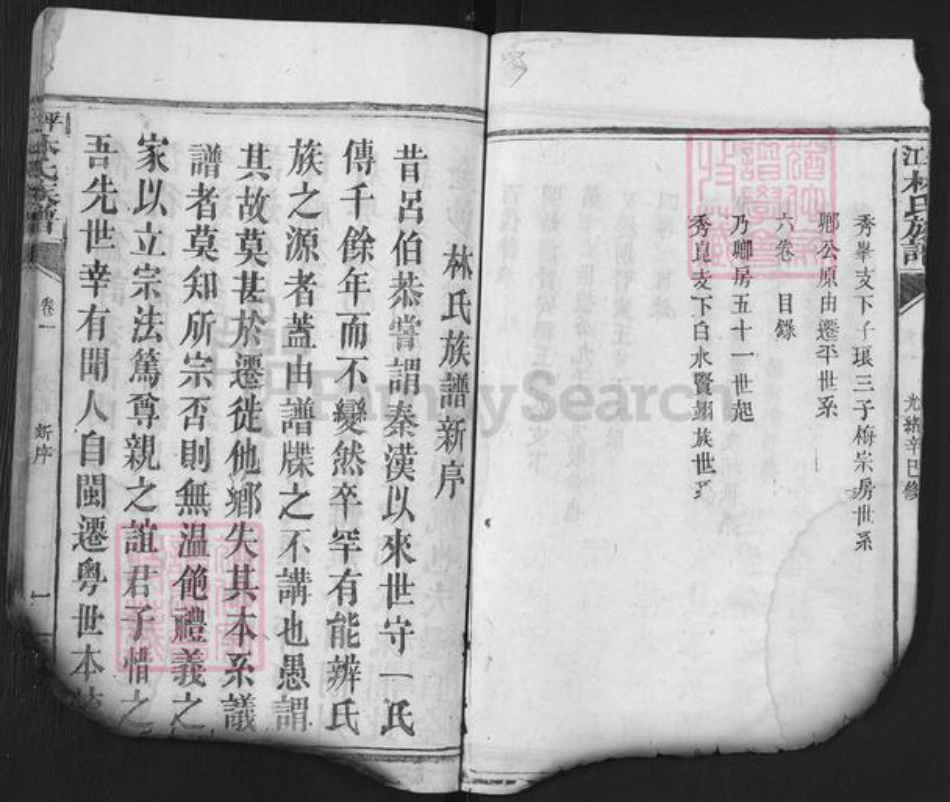 江林氏族譜
光緒辛巳修
秀峯支下子瓌三子梅宗房世系
鄉公原由遷平世系
六卷 目錄
乃卿房五十一世起
秀崑支下白水賢翊族世系
林氏族譜新序
昔呂伯恭嘗謂秦漢以來世守一氏
傳千餘年而不變然卒罕有能辨氏
族之源者蓋由譜牒之不講也愚謂
其故莫甚於遷徙他鄉失其本系議
譜者莫知所宗否則無溫飽禮義之
家以立宗法篤尊親之誼君子惜之
吾先世幸有聞人自閩遷粵世本
平林氏族譜
卷一
新序
一
FamilySearch